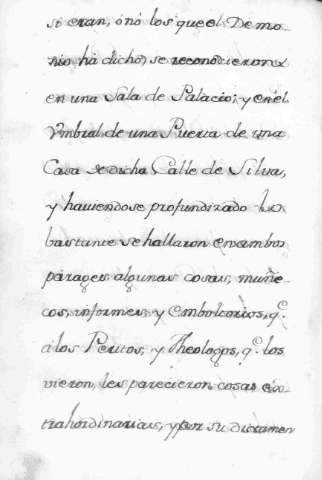 si eran, ó nó los que el Demo-
nio ha dicho, se reconocieron
en una Sala de Palacio, y en el
Vmbral de una Puerta de una
Casa de dicha Calle de Silva,
y haviendose profundizado lo
bastante se hallaron en ambos
parages algunas cosas, muñe-
cos, informes, y emboltorios, q.e
á los Peritos, y Theologos, q.e los
vieron, les parecieron cosas ex-
trahordinarias, y por su dictamen